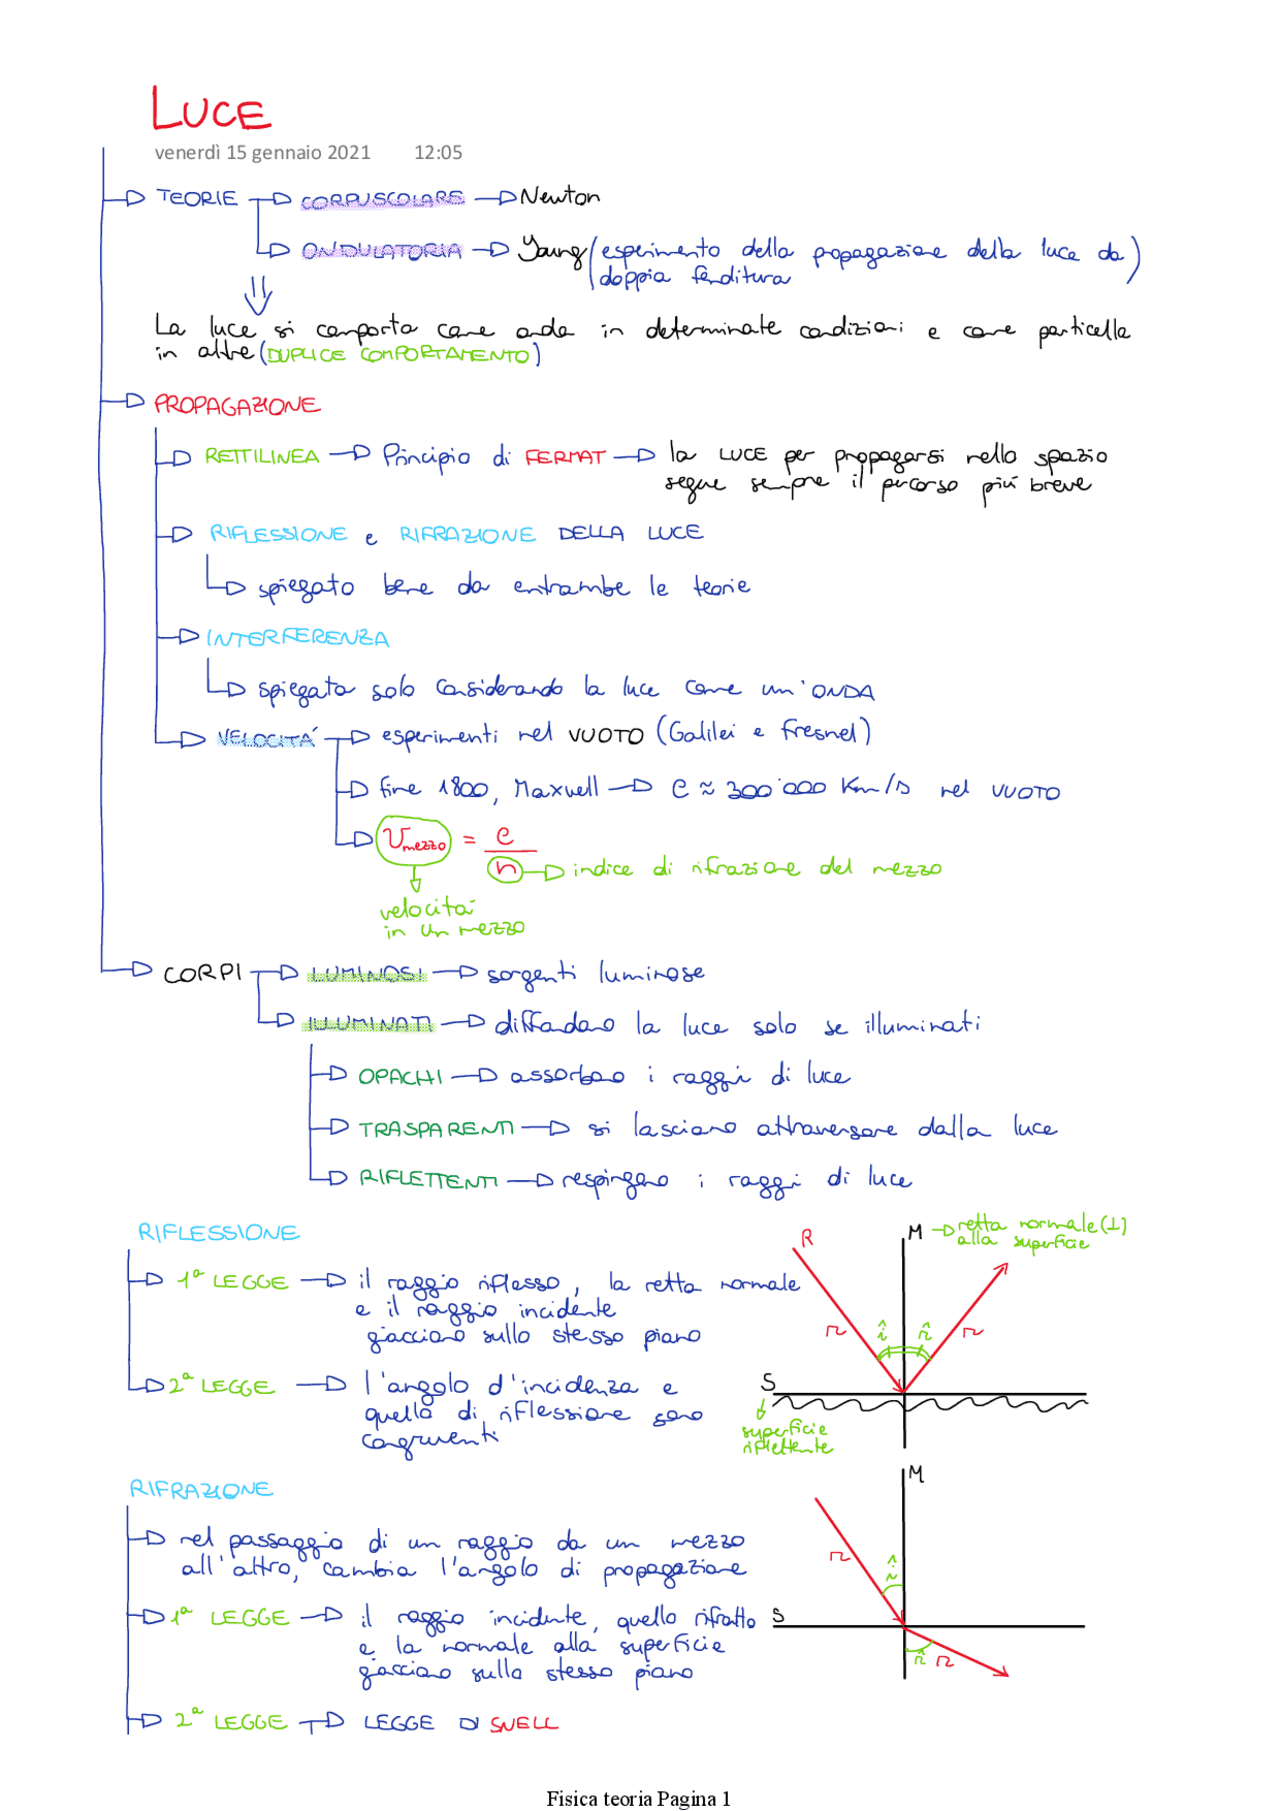 LUCE
venerdì 15 gennaio 2021 12:05
TEORIE CORPUSCOLARE Newton
ONDULATORIA Young (esperimento della propagazione della luce da
doppia fenditura)
La luce si comporta come onda in determinate condizioni e come particella
in altre (DUPLICE COMPORTAMENTO)
PROPAGAZIONE
RETTILINEA Principio di FERMAT la LUCE per propagarsi nello spazio
segue sempre il percorso più breve
RIFLESSIONE e RIFRAZIONE DELLA LUCE
spiegato bene da entrambe le teorie
INTERFERENZA
spiegata solo considerando la luce come un'ONDA
VELOCITÁ esperimenti nel VUOTO (Galilei e Fresnel)
fine 1800, Maxwell c ≈ 300'000 Km/s nel VUOTO
Vmezzo = c
n indice di rifrazione del mezzo
velocitá
in un mezzo
CORPI LUMINOSI sorgenti luminose
ILLUMINATI diffondono la luce solo se illuminati
OPACHI assorbono i raggi di luce
TRASPARENTI si lasciano attraversare dalla luce
RIFLETTENTI respingono i raggi di luce
RIFLESSIONE
R M retta normale (⊥)
alla superficie
1ª LEGGE il raggio riflesso, la retta normale
e il raggio incidente
giacciono sullo stesso piano
r î r̂ r
2ª LEGGE l'angolo d'incidenza e
quello di riflessione sono
congruenti
S
superficie
riflettente
RIFRAZIONE
M
nel passaggio di un raggio da un mezzo
all'altro, cambia l'angolo di propagazione
r î
1ª LEGGE il raggio incidente, quello rifratto
e la normale alla superficie
giacciono sullo stesso piano
S
r̂ r
2ª LEGGE LEGGE DI SNELL
Fisica teoria Pagina 1